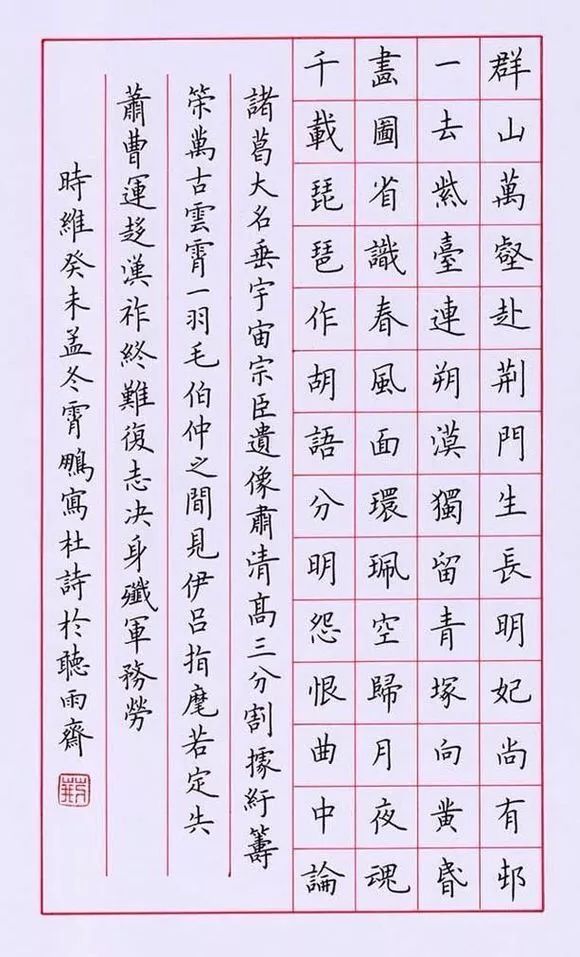 群山萬壑赴荆門生長明妃尚有邨
一去紫臺連朔漠獨留青塚向黄昏
畫圖省識春風面環珮空歸月夜魂
千載琵琶作胡語分明怨恨曲中論
諸葛大名垂宇宙宗臣遺像肅清髙三分割據紆籌
策萬古雲霄一羽毛伯仲之間見伊吕指麾若定失
蕭曹運移漢祚終難復志决身殲軍務勞
時維癸未孟冬霄鵬寫杜詩於聽雨齋